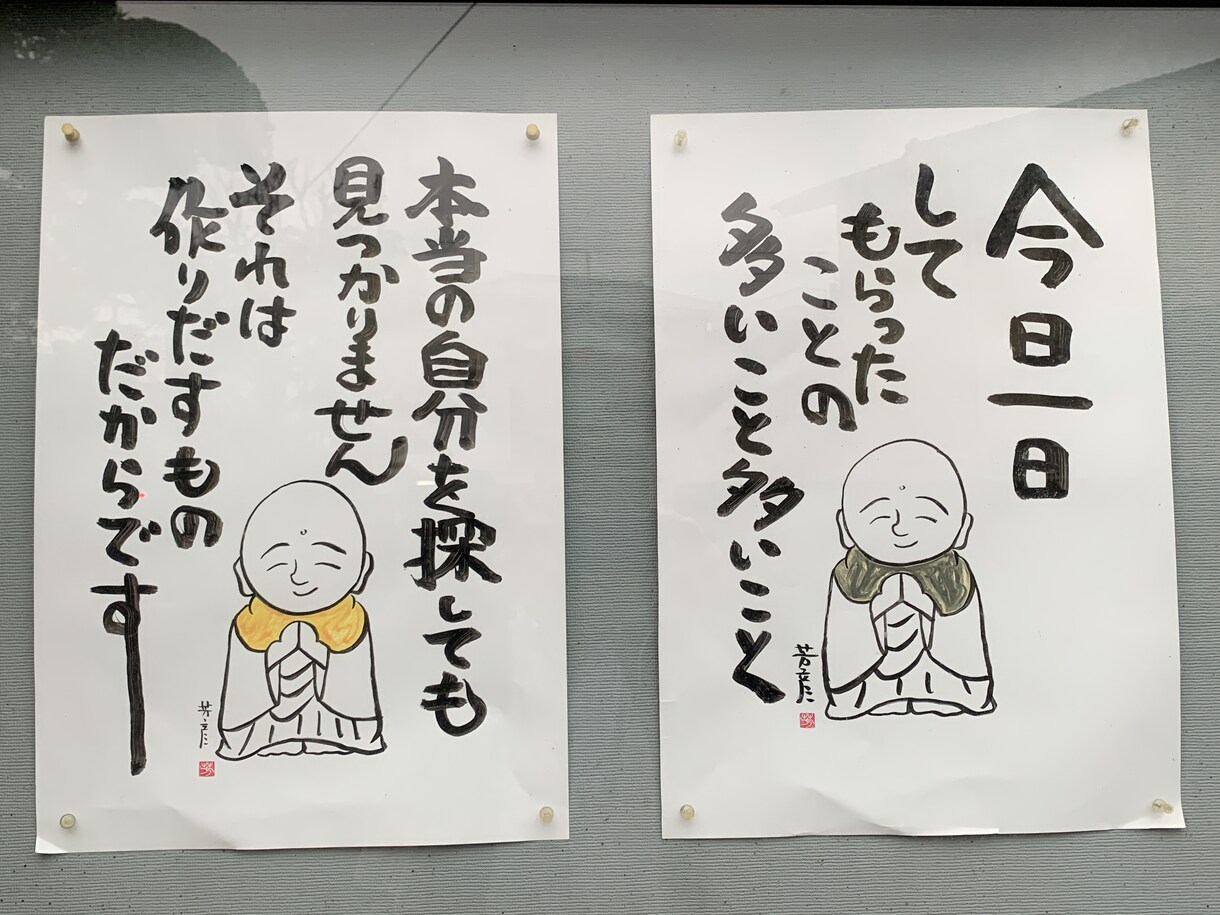 今日一日
して
もらった
ことの
多いこと多いこと
本当の自分を探しても
見つかりません
それは
作りだすもの
だからです